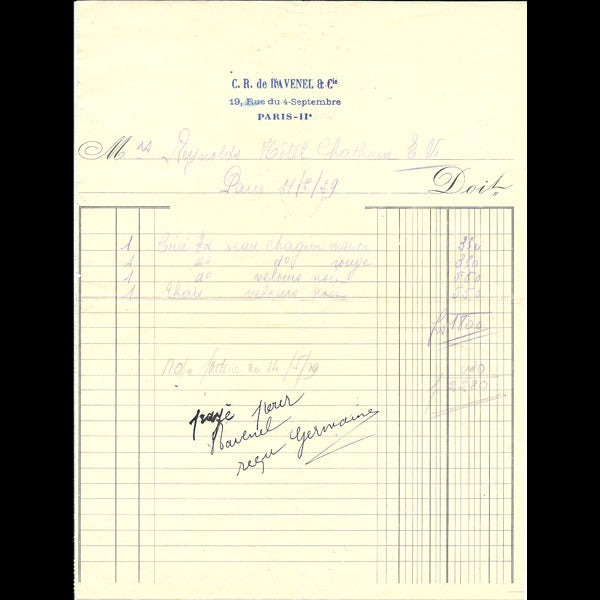 C. R. de RAVENEL & Cie
19, Rue du 4-Septembre
PARIS-IIe
Mrs Reynolds Hôtel Chatham E. V.
Paris 31/5/29 Doit
1 veau chagrin 350
1 do do rouge 350
1 do velours noir 550
1 velours noir 550
1800
Note facture du 14/5/29
2280
payé pour
Ravenel
reçu Germaine